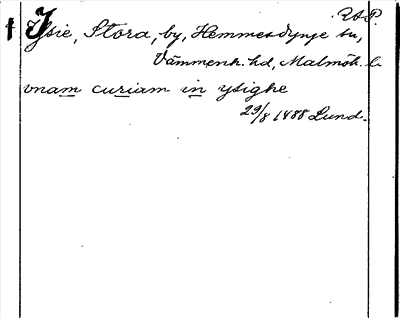 RAP.
t Ysie, Stora, by, Hemmesdynge sn,
Vämmenh. hd, Malmöh. l.
vnam curiam in ysighe
29/8 1488 Lund.